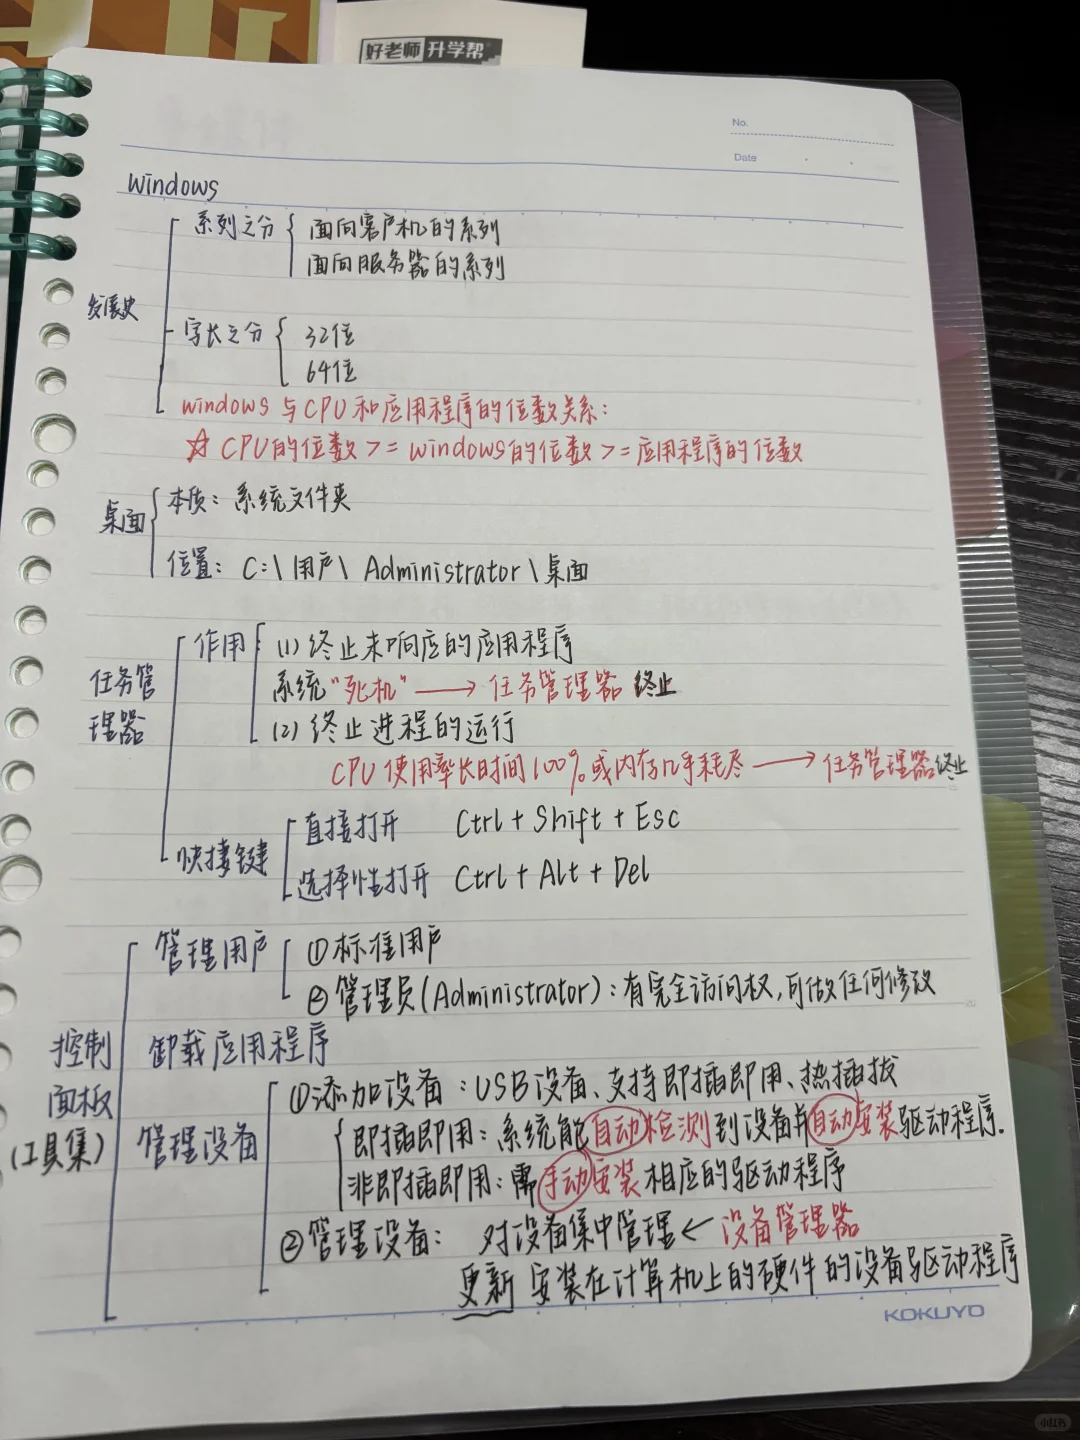 好老师 升学帮
No.
Date
Windows
系列之分 面向客户机的系列
面向服务器的系列
发展史
字长之分 32位
64位
windows 与 CPU 和应用程序的位数关系:
☆ CPU的位数 >= windows的位数 >= 应用程序的位数
桌面 本质: 系统文件夹
位置: C:\用户\ Administrator\桌面
任务管理器 作用 (1) 终止未响应的应用程序
系统"死机" → 任务管理器 终止
(2) 终止进程的运行
CPU 使用率长时间100%或内存几乎耗尽 → 任务管理器终止
快捷键 直接打开 Ctrl + Shift + Esc
选择性打开 Ctrl + Alt + Del
控制面板(工具集)
管理用户 ①标准用户
②管理员(Administrator): 有完全访问权,可做任何修改
卸载应用程序
管理设备 ①添加设备: USB设备、支持即插即用、热插拔
即插即用: 系统能自动检测到设备并自动安装驱动程序.
非即插即用: 需手动安装相应的驱动程序
②管理设备: 对设备集中管理 ← 设备管理器
更新 安装在计算机上的硬件的设备驱动程序
KOKUYO
小红书